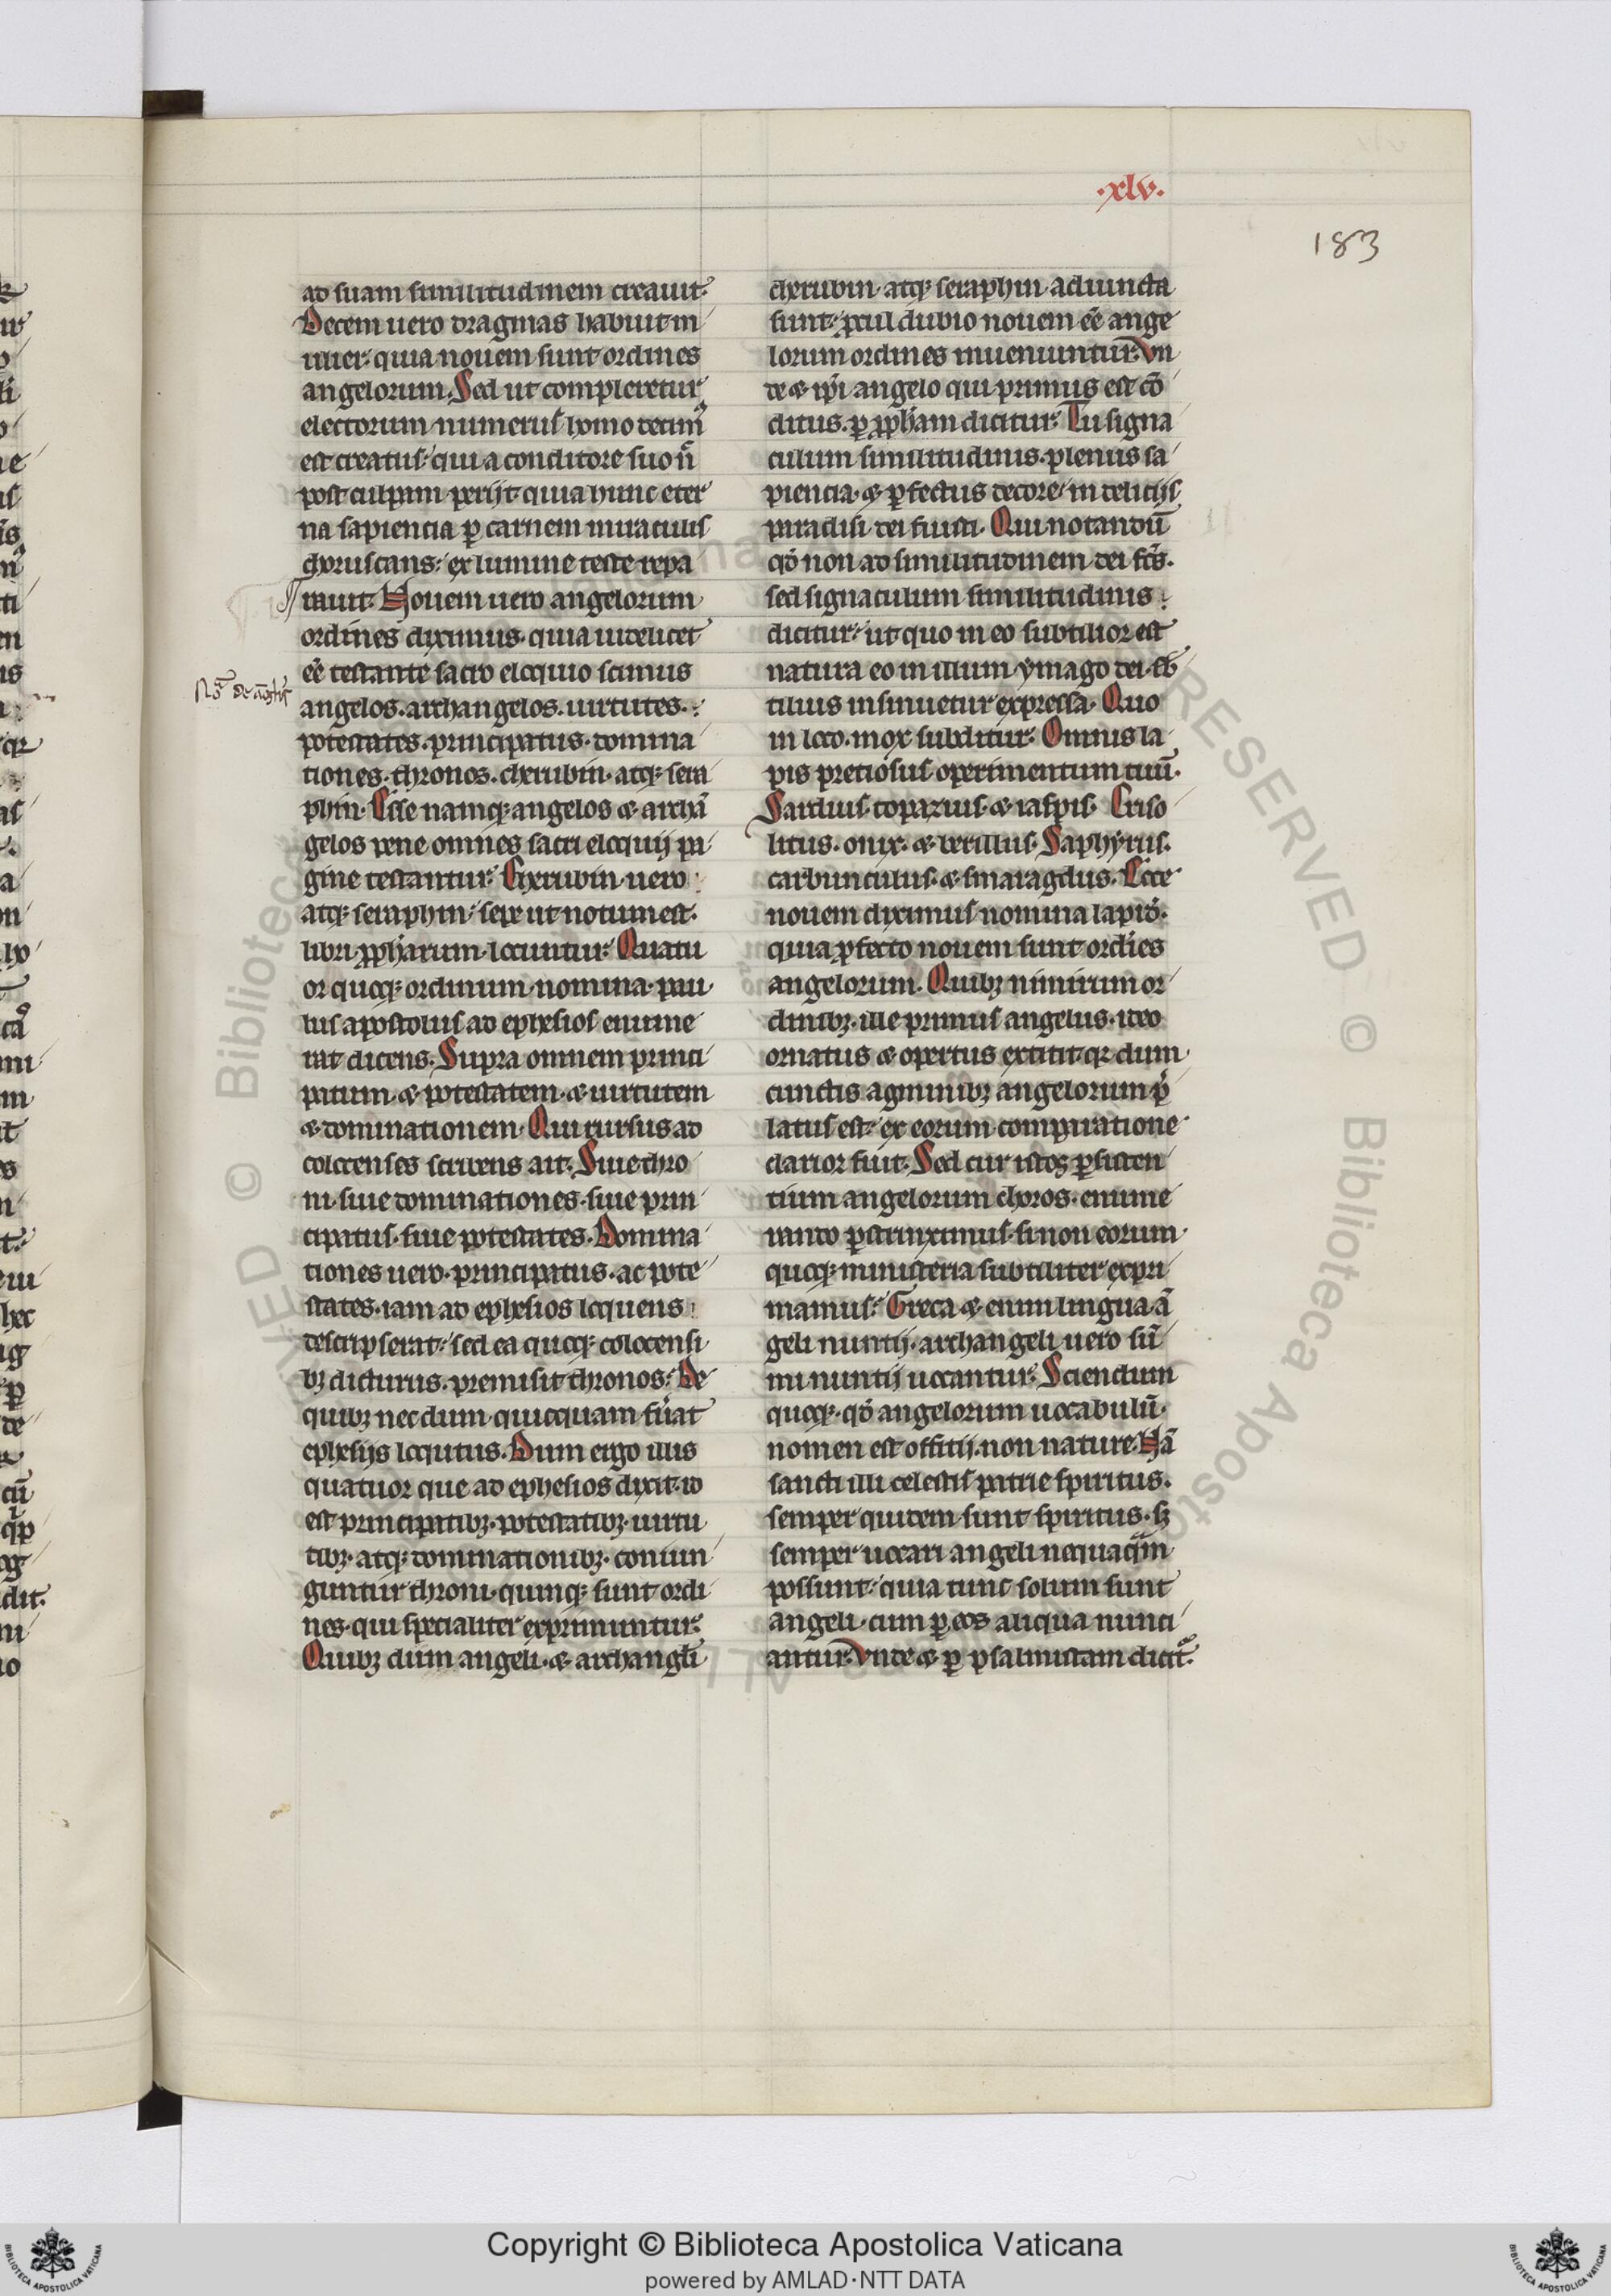 .xlv.
183
ad suam similitudinem creauit.
Decem uero dragmas habuit m
ulier quia nouem sunt ordines
angelorum. Sed ut compleretur
electorum numerus homo decimꝰ
est creatus. qui a conditore suo n̄
post culpam perijt quia hunc eter
na sapiencia ꝑ carnem miraculis
choruscans. ex lumine teste repa
rauit. Nouem uero angelorum
ordines diximus. quia uidelicet
eē testante sacro eloquio scimus
angelos. archangelos. uirtutes.
potestates. principatus. domina
tiones. thronos. cherubin. atqꝫ sera
phin. Esse namqꝫ angelos ⁊ archā
gelos pene omnes sacri eloquij pa
gine testantur. Cherubin uero
atqꝫ seraphin. sepe ut notum est.
libri ꝓph̄arum locuntur. Quatu
or quoqꝫ ordinum nomina pau
lus apostolus ad ephesios enume
rat dicens. Supra omnem princi
patum. ⁊ potestatem. ⁊ uirtutem
⁊ dominationem. Qui rursus ad
colocenses scribens ait. Siue thro
ni. siue dominationes. siue prin
cipatus. siue potestates. Domina
tiones uero. principatus. ac pote
states. iam ad ephesios loquens
descripserat. sed ea quoqꝫ colocensi
bꝫ dicturus. premisit thronos. De
quibꝫ nec dum quicquam fu̾at
ephesijs locutus. Dum ergo illis
quatuor que ad ephesios dixit. id
est principatibꝫ. potestatibꝫ. uirtu
tibꝫ. atqꝫ dominationibꝫ. coniun
guntur throni. quinqꝫ sunt ordi
nes. qui specialiter exprimuntur.
Quibꝫ dum angeli. ⁊ archangl̄i
cherubin. atqꝫ seraphin adiuncta
sunt. ꝓcul dubio nouem eē ange
lorum ordines inueniuntur. Vn
de ⁊ ip̄i angelo qui primus est cō
ditus. ꝑ ꝓph̄am dicitur. Tu signa
culum similitudinis. plenus sa
piencia. ⁊ ꝑfectus decore. in delicijs
paradisi dei fuisti. Qui notandū
qd̾ non ad similitudinem dei fc̄s.
sed signaculum similitudinis
dicitur. ut quo in eo subtilior est
natura eo in illum ymago dei. sb̾
tilius insinuetur expressa. Quo
in loco. mox subditur. Omnis la
pis pretiosus operimentum tuū.
Sardius. topazius. ⁊ iaspis. Criso
litus. onix. ⁊ berillus. Saphyrus.
carbunculus. ⁊ smaragdus. Ecce
nouem diximus nomina lapid̾.
quia ꝓfecto nouem sunt ordi̅es
angelorum. Quibꝫ nimirum or
dinibꝫ. ille primus angelus. ideo
ornatus ⁊ opertus extitit. qꝛ dum
cunctis agminibꝫ angelorum p̾
latus est. ex eorum comparatione
clarior fuit. Sed cur istos ꝑsisten
tium angelorum choros. enume
rando ꝑstrinximus. si non eorum
quoqꝫ ministeria subtiliter expri
mamus. Greca ⁊ enim lingua ā
geli nuntij. archangeli uero sū
mi nuntij uocantur. Sciendum
quoqꝫ. qd̾ angelorum uocabulū.
nomen est offitij. non nature. Nā
sancti illi celestis patrie spiritus.
semper quidem sunt spiritus. sꝫ
semper uocari angeli nequaqm̄
possunt. quia tunc solum sunt
angeli. cum ꝑ eos aliqua nunci
antur. Vnde ⁊ ꝑ psalmistam dicit᷑.